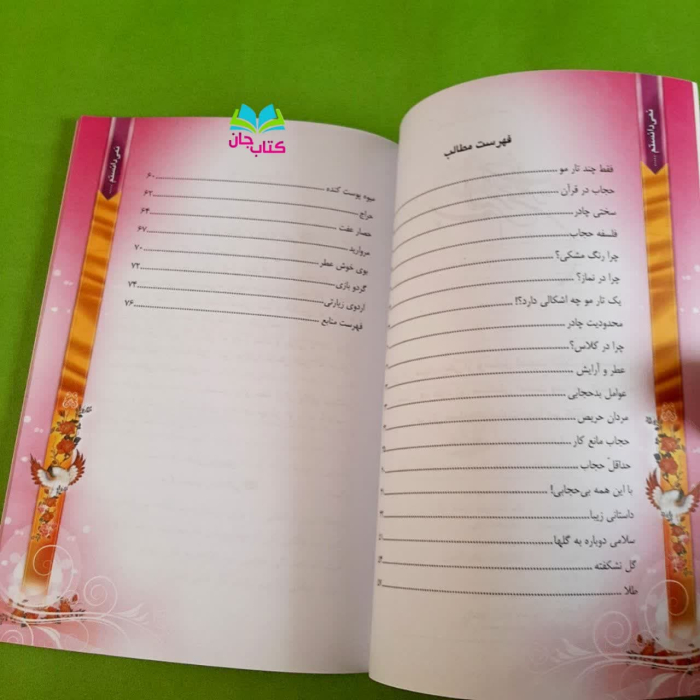 نمی‌دانستم ...
فهرست مطالب
فقط چند تار مو
حجاب در قرآن
سختی چادر
فلسفه حجاب
چرا رنگ مشکی؟
چرا در نماز؟
یک تار مو چه اشکالی دارد؟!
محدودیت چادر
چرا در کلاس؟
عطر و آرایش
عوامل بدحجابی
مردان حریص
حجاب مانع کار
حداقل حجاب
با این همه بی‌حجابی!
داستانی زیبا
سلامی دوباره به گلها
گل نشکفته
طلا
کتاب جان
نمی‌دانستم ...
میوه پوست کنده ۶۰
حراج ۶۲
حصار عفت ۶۴
مروارید ۶۷
بوی خوش عطر ۷۰
گردو بازی ۷۲
اردوی زیارتی ۷۴
فهرست منابع ۷۶